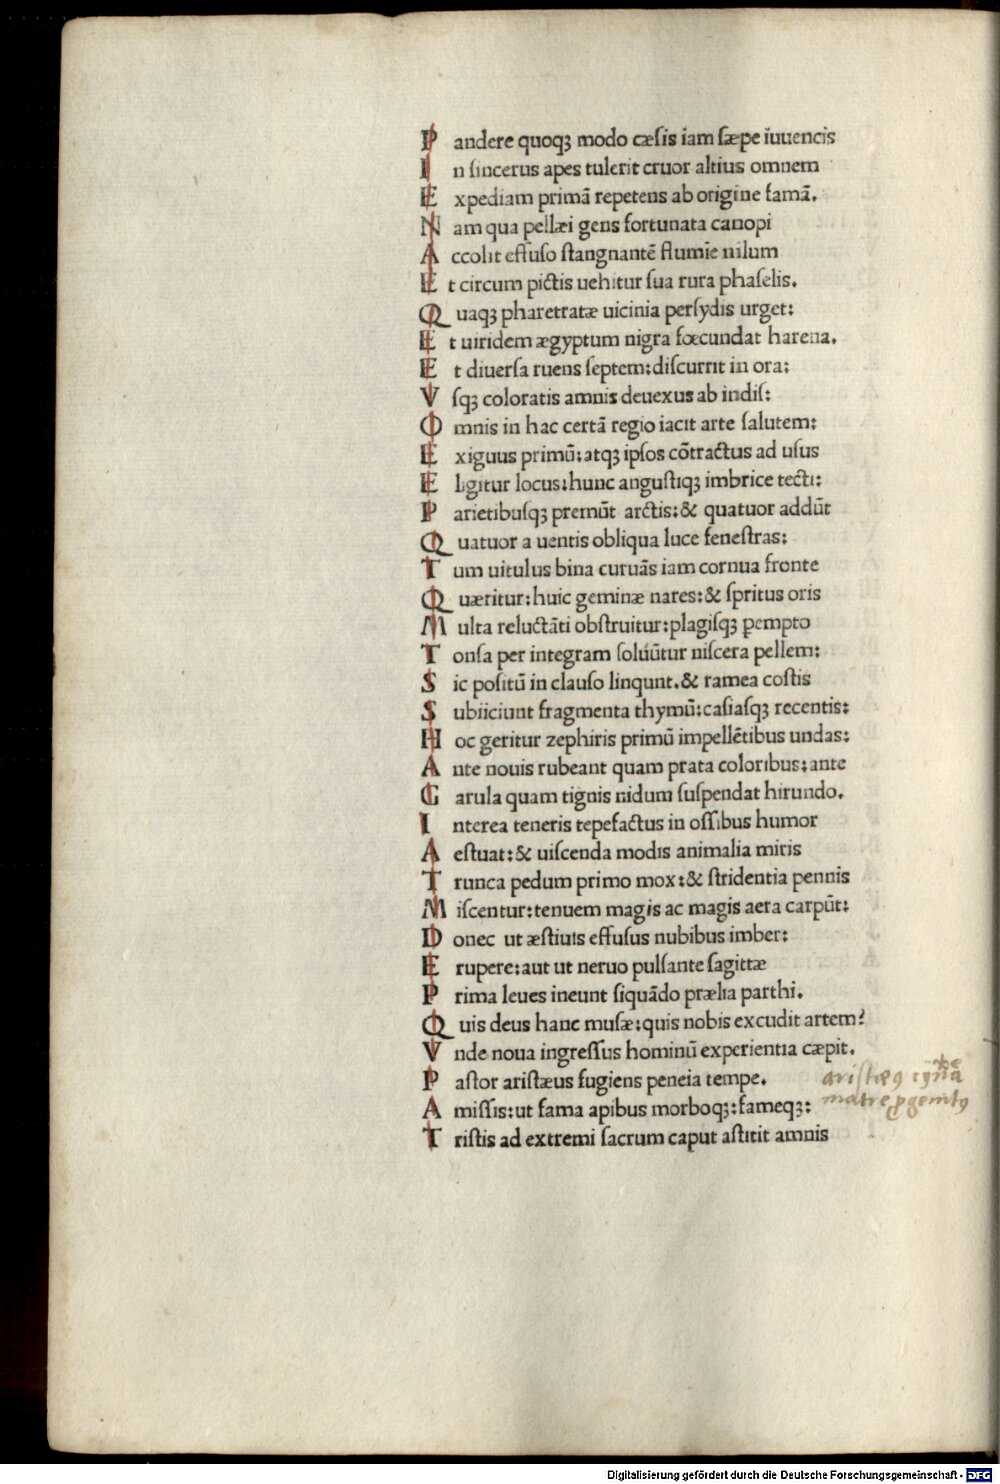 P andere quoqꝫ modo cæsis iam sæpe iuuencis
I n sincerus apes tulerit cruor altius omnem
E xpediam primā repetens ab origine famā.
N am qua pellæi gens fortunata canopi
A ccolit effuso stangnantē flumīe nilum
E t circum pictis uehitur sua rura phaselis.
Q uaqꝫ pharetratæ uicinia persydis urget:
E t uiridem ægyptum nigra fœcundat harena.
E t diuersa ruens septem: discurrit in ora:
V sqꝫ coloratis amnis deuexus ab indis:
O mnis in hac certā regio iacit arte salutem:
E xiguus primū: atqꝫ ipsos cōtractus ad usus
E ligitur locus: hunc angustiqꝫ imbrice tecti:
P arietibusqꝫ premūt arctis: & quatuor addūt
Q uatuor a uentis obliqua luce fenestras:
T um uitulus bina curuās iam cornua fronte
Q uæritur: huic geminæ nares: & spritus oris
M ulta reluctāti obstruitur: plagisqꝫ pempto
T onsa per integram soluūtur niscera pellem:
S ic positū in clauso linqunt. & ramea costis
S ubiiciunt fragmenta thymū: casiasqꝫ recentis:
H oc geritur zephiris primū impellētibus undas:
A nte nouis rubeant quam prata coloribus: ante
G arula quam tignis nidum suspendat hirundo.
I nterea teneris tepefactus in ossibus humor
A estuat: & uiscenda modis animalia miris
T runca pedum primo mox: & stridentia pennis
M iscentur: tenuem magis ac magis aera carpūt:
D onec ut æstiuis effusus nubibus imber:
E rupere: aut ut neruo pulsante sagittæ
P rima leues ineunt siquādo prælia parthi.
Q uis deus hanc musæ: quis nobis excudit artem?
V nde noua ingressus hominū experientia cæpit.
P astor aristæus fugiens peneia tempe.
A missis: ut fama apibus morboqꝫ: fameqꝫ:
T ristis ad extremi sacrum caput astitit amnis
aristæꝰ
matre ꝓgenitꝰ
Digitalisierung gefördert durch die Deutsche Forschungsgemeinschaft - DFG